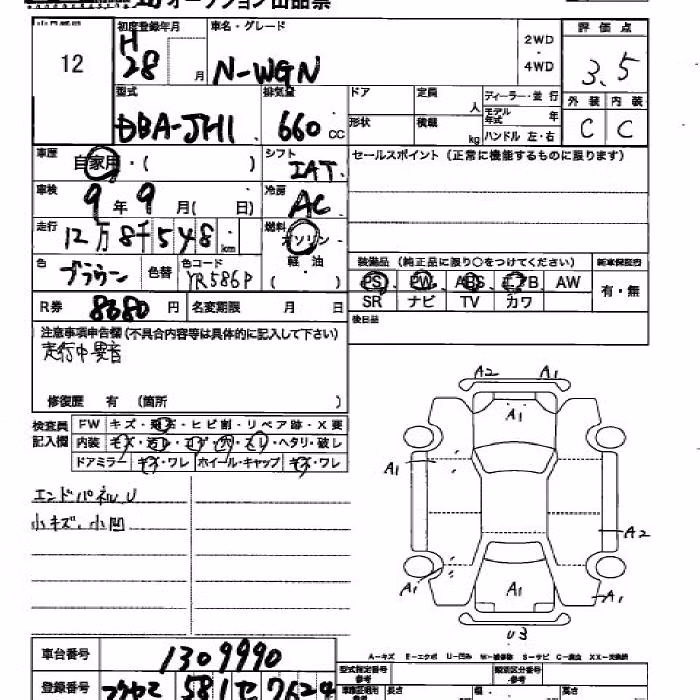 オークション出品票
12
初度登録年月
H
28 月
車名・グレード
N-WGN
2WD
・
4WD
評価点
3.5
外装 内装
C C
型式
DBA-JH1
排気量
660 CC
ドア
形状
定員 人
積載 kg
ディーラー・並行
モデル年式 年
ハンドル 左・右
車歴 自家用・( )
シフト IAT
セールスポイント (正常に機能するものに限ります)
車検 9年9月( 日)
冷房 AC
走行 12万8千548km
燃料 ガソリン・
軽・油
( )
色 ブラウン
色替
色コード YR586P
装備品 (純正品に限り〇をつけてください)
新車保証書
PS PW ABS エアB AW
有・無
SR ナビ TV カワ
R券 8080円
名変期限 月 日
後日品
注意事項申告欄(不具合内容等は具体的に記入して下さい)
走行中異音
修復歴 有 (箇所 )
検査員記入欄
FW キズ・飛石・ヒビ割・リペア跡・X要
内装 キズ・汚レ・コゲ・穴・スレ・ヘタリ・破レ
ドアミラー キズ・ワレ ホイール・キャップ キズ・ワレ
エンドパネルU
小キズ、小凹
A2 A1
A1
A1
A2
A1 A1 A1
U3
A-キズ E-エクボ U-凹み W-補修跡 S-サビ C-腐食 XX-交換済
車台番号 1309990
登録番号 581 セ 7624
型式指定番号
参考
類別区分番号
参考
長さ 幅 高さ